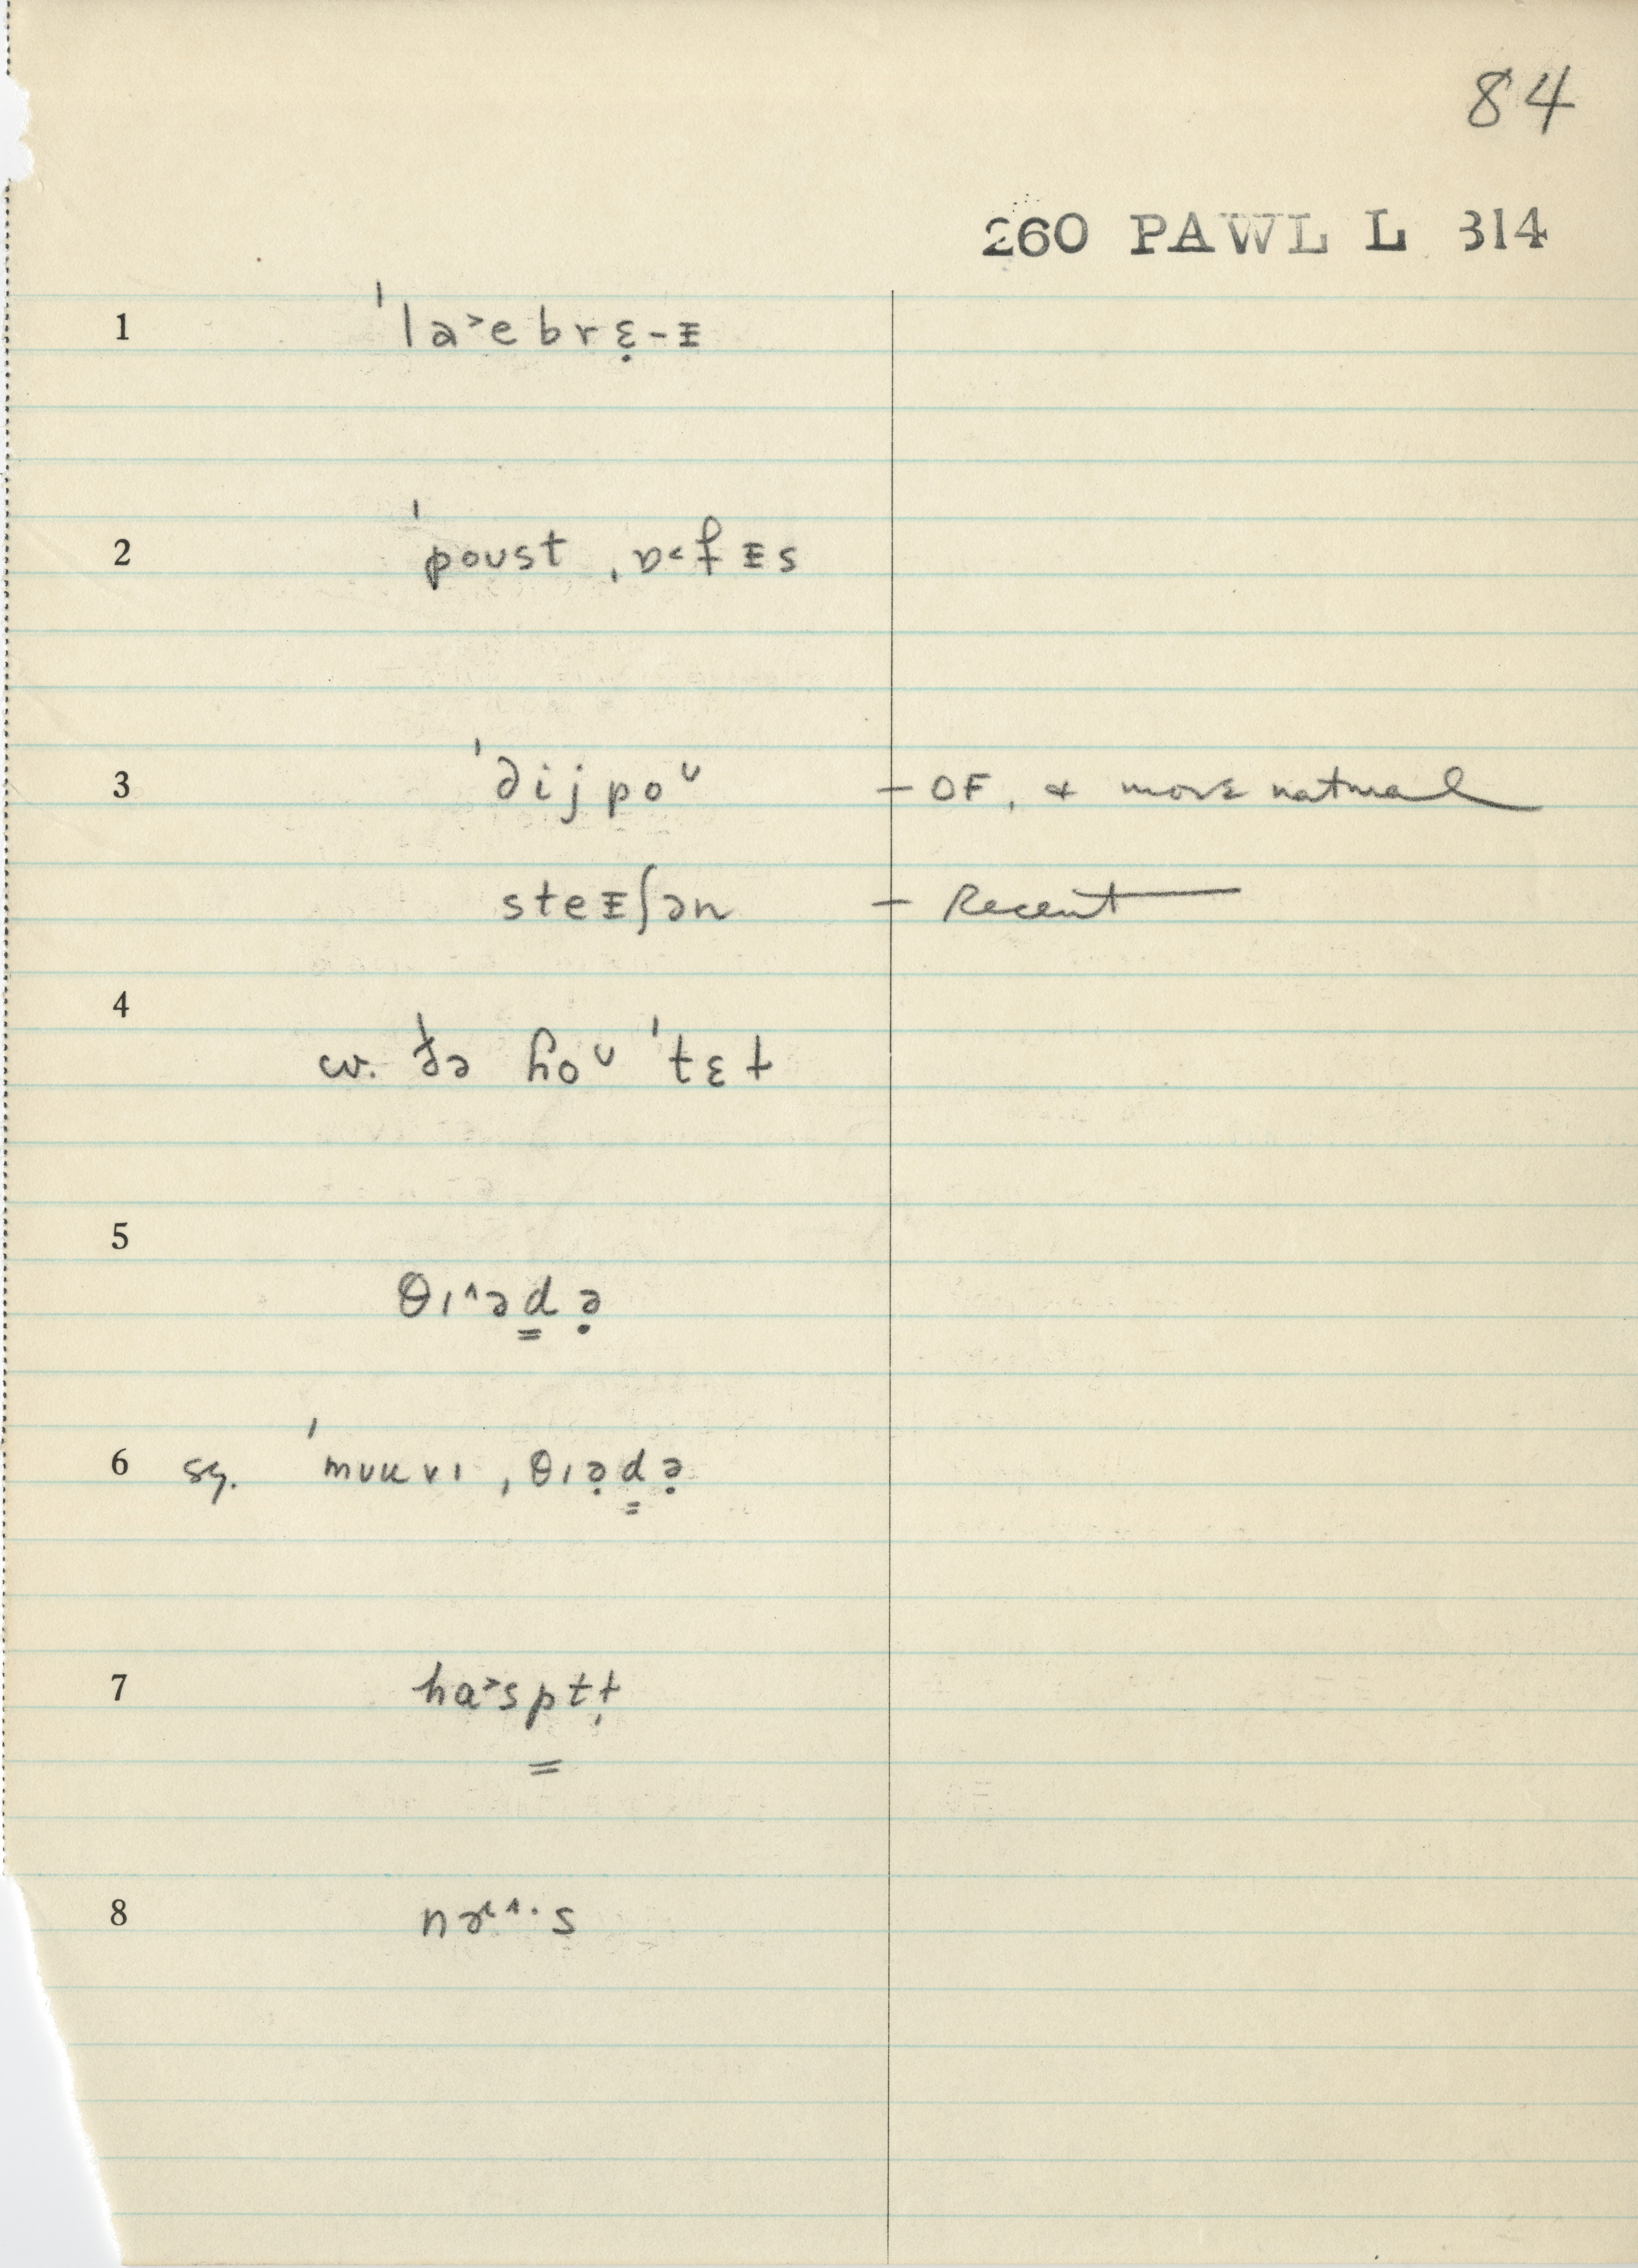 84
260 PAWL L 314
1 ˈla˃ebrɛ̣-ᵻ
2 ˈpoust ˌɒ˂fᵻs
3 ˈdijpoᵕ – OF, & more natural
steᵻʃən – Recent
4 cv. ðə hoᵕ ˈtɛɫ
5 θɪ˄əd̳ə̣
6 sy. ˈmuuvɪ ˌθɪə̣d̳ə̣
7 ha˃sptɫ̩
8 nɚ˄·s